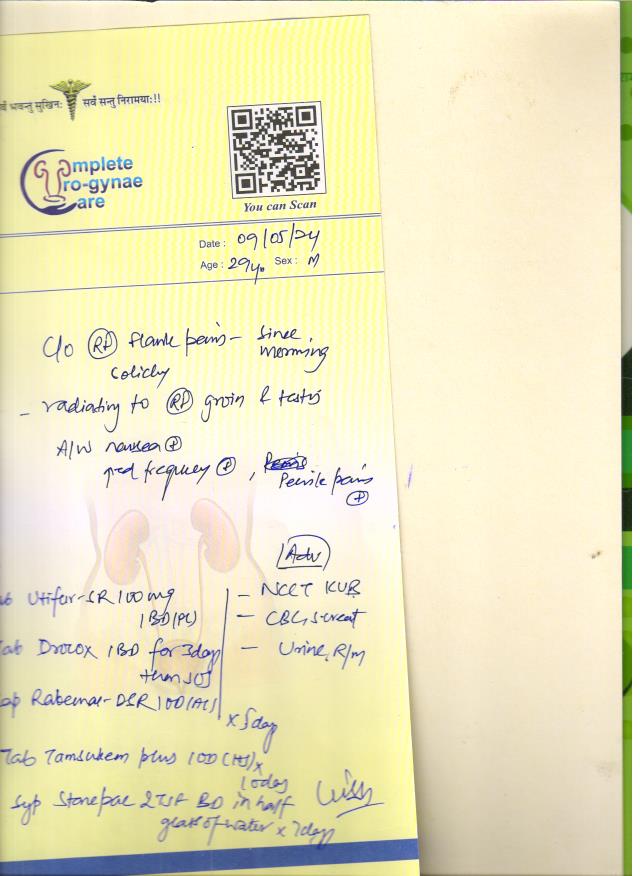 र्वे भवन्तु सुखिनः सर्वे सन्तु निरामयाः!!
Complete
Uro-gynae
Care
You can Scan
Date : 09/05/24
Age : 29yo Sex : M
C/o (Rt) flank pain - since morning
colicky
- radiating to (Rt) groin & testis
A/W nausea ⊕
↑ed frequency ⊕, Penile pain ⊕
Adv
- NCCT KUB
- CBC, S.creat
- Urine, R/m
ab SR 100mg
1BD (PC)
Tab 1BD for 3day
then SOS
ap DSR 1OD (AC)
x 5day
Tab plus 1OD (HS) x
10day
Syp 2TSF BD in half
glass of water x 7day